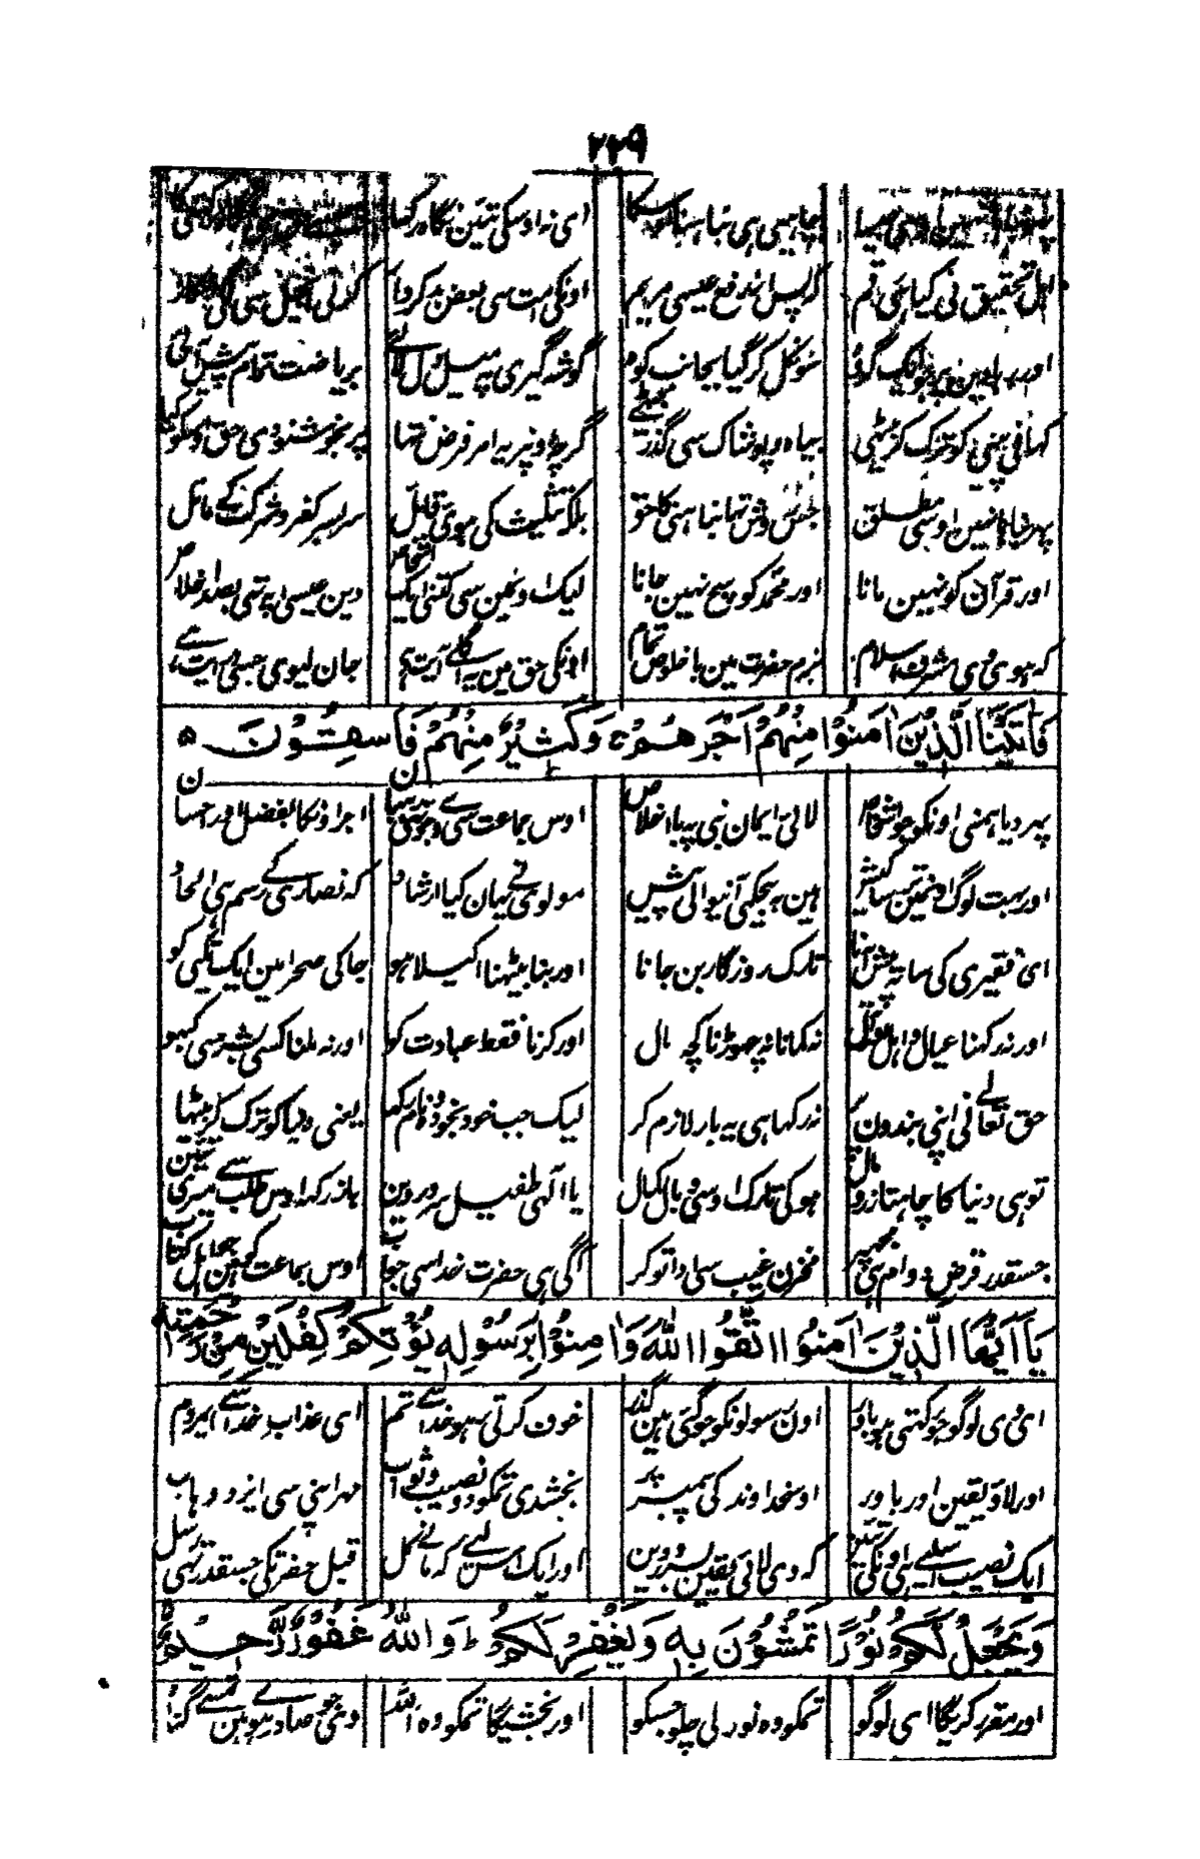 ۲۲۹
چاہیسی ہی نباہنا اوسکا ای نہ اوسکی تئین نگاہ رکہا
اہل تحقیق نی کیا ہی رقم کہ پس از رفع عیسی مریم اونکی امت سی بعض بد کردار کوئی انجیل سی
اور سو نکل کر گیا بجانب کوہ گوشہ گیری پہ میل لائے بریاضت تمام پیش آئی
کہانی پینی کو ترک کر بیٹہی بیاہ و پوشاک سی گذر بیٹہے گرچہ اونپر یہ امر فرض نتہا پر بخوشنودی حق اوسکو کیا
پہر نباہا نہین اوسی مطلق جس روش تہا نباہنی کا حق بلکہ تثلیث کی ہوئی قابل سراسر کفر و شرک کے مائل
اور قرآن کو نہین مانا اور محمد کو سچ نہین جانا لیک اونہین سی کتنی ایک اشخاص دین عیسی پہ تہی بصد اخلاص
کہ ہوی وی مشرف اسلام بزم حضرت مین با خلوص تمام اونکی حق مین یہ اگلے آیت ہے جان لیوی جسی ہدایت ہے
فَاٰتَيْنَا الَّذِيْنَ اٰمَنُوْا مِنْهُمْ اَجْرَهُمْ ۚ وَكَثِيْرٌ مِّنْهُمْ فَاسِقُوْنَ ۵
پہر دیا ہمنی اونکو جو اشخاص لائی ایمان نبی پہ با اخلاص اوس جماعت سے اجر اونکا بفضل اور احسان
اور بہت لوگ اونمین ہین کثیر ہین مولوی نے یہان کیا ارشاد کہ نصاری کے رسم ہی الحاد
ای فقیری کی ساتہ پیش آنا تارک روزگار بن جانا اور بنا بیٹہنا اکیلا ہو جا کی صحرا مین ایک تکیی کو
اور نہ رکہنا عیال و اہل نہ کمانا نہ چہوڑنا کچہ مال اور کرنا فقط عبادت کو اور نہ ملنا کسی بشر سی کبہو
حق تعالے نی اپنی بندون پر نہ رکہا ہی یہ بار لازم کر لیک جب خود بخود وہ نام رکہا یعنی دنیا کو ترک کر بیٹہا
توہی دنیا کا چاہنا زر و مال ہو کی تارک اوسی وبال کمال یا الٰہی طفیل سرور دین باز رکہ اوس طلب سے میری تئین
جسقدر قرض و وام ہی مجہپر مخزن غیب سی ادا تو کر آگی ہی حضرت خدا سی جواب اوس جماعت کو ہین جو اہل کتاب
يَآ اَيُّهَا الَّذِيْنَ اٰمَنُوا اتَّقُوا اللّٰهَ وَاٰمِنُوْا بِرَسُوْلِهٖ يُؤْتِكُمْ كِفْلَيْنِ مِنْ رَّحْمَتِهٖ
ای وی لوگو جو کہتی ہو باور اون رسولونکو جو گئی ہین گذر خوف کرتی رہو خدا سے تم ای عذاب خدا سے ای مردم
اور لاؤ یقین اور باور اوس خداوند کی پیمبر پر بخشدی تمکو دو نصیب ثواب مہر اپنی سی ایزد وہاب
ایک نصیب اسلئے ہی اونکی تئین کہ وی لائی یقین بسرور دین اور ایک اس لئے کہ مانے کل قبل حضرتکی جسقدر تہی رسل
وَيَجْعَلْ لَّكُمْ نُوْرًا تَمْشُوْنَ بِهٖ وَيَغْفِرْ لَكُمْ ؕ وَاللّٰهُ غَفُوْرٌ رَّحِيْمٌ
اور مقرر کریگا ای لوگو تمکو وہ نور لی چلو جسکو اور بخشیگا تمکو وہ اللہ وی جو صادر ہوئی ہین تمسے گناہ